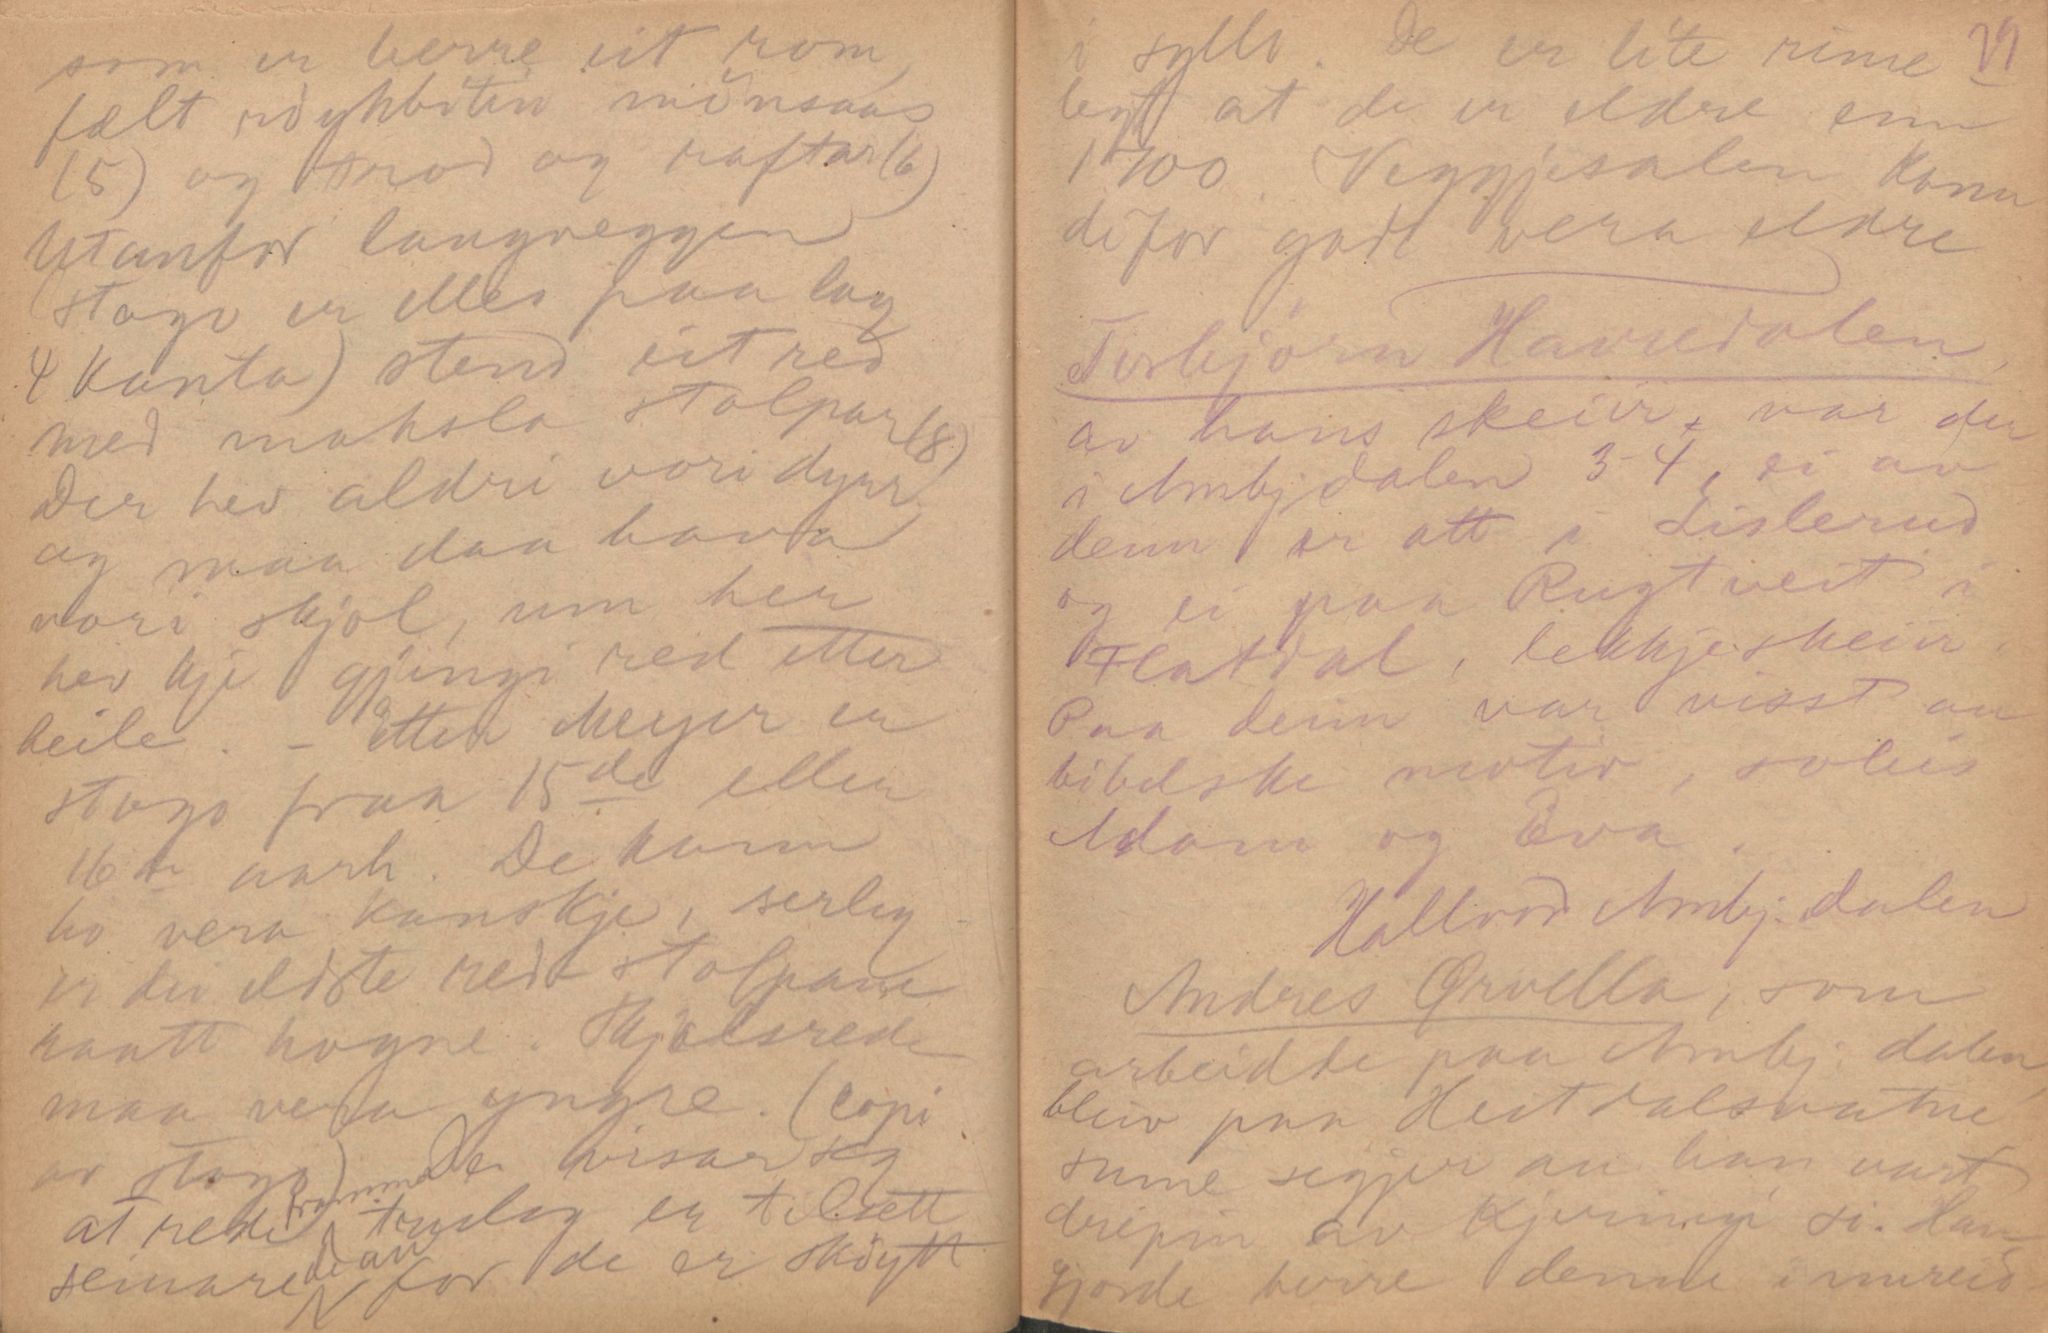 som er berre eit rom,
fælt röykbiten mönsaas
(5) og trod og raftar (6)
Utanfor langveggen
stogo er elles paa lag
4 kanta) stend eit red
med mahsla stolpar (8)
Der hev aldri vori dyrr
og maa daa hava
vori skjol, um her
hev kje gjengi red etter
heile. - Etter Meyer er
stogo fraa 15de eller
16de aarh. De kann
ho vera kanskje, serleg
er dei eldste red-stolpane
haatt hogne. Skjolsrede
maa vera yngre. (Copi
av stogo) De visar seg
at rede framma truleg er tilsett
seinare de au for de er sköytt
29
i syllo. De er lite rime
legt at de er eldre enn
1700. Veggjesalen kann
difor godt vera eldre
Torbjörn Havredalen,
av hans skeier, var der
i Ambjdalen 3-4, ei av
deim er att i Lislerud
og ei paa Rugtveit i
Flatdal, lekkjeskeier.
Paa deim var visst au
bibelske motiv, soleis
Adam og Eva.
Hallvor Ambj. dalen
Andres Ørvella, som
arbeidde paa Ambj. dalen,
bleiv paa Heitdalsvatne
sume segjer au han vart
dripin av kjeringi si. Han
gjorde berre denne i mreid